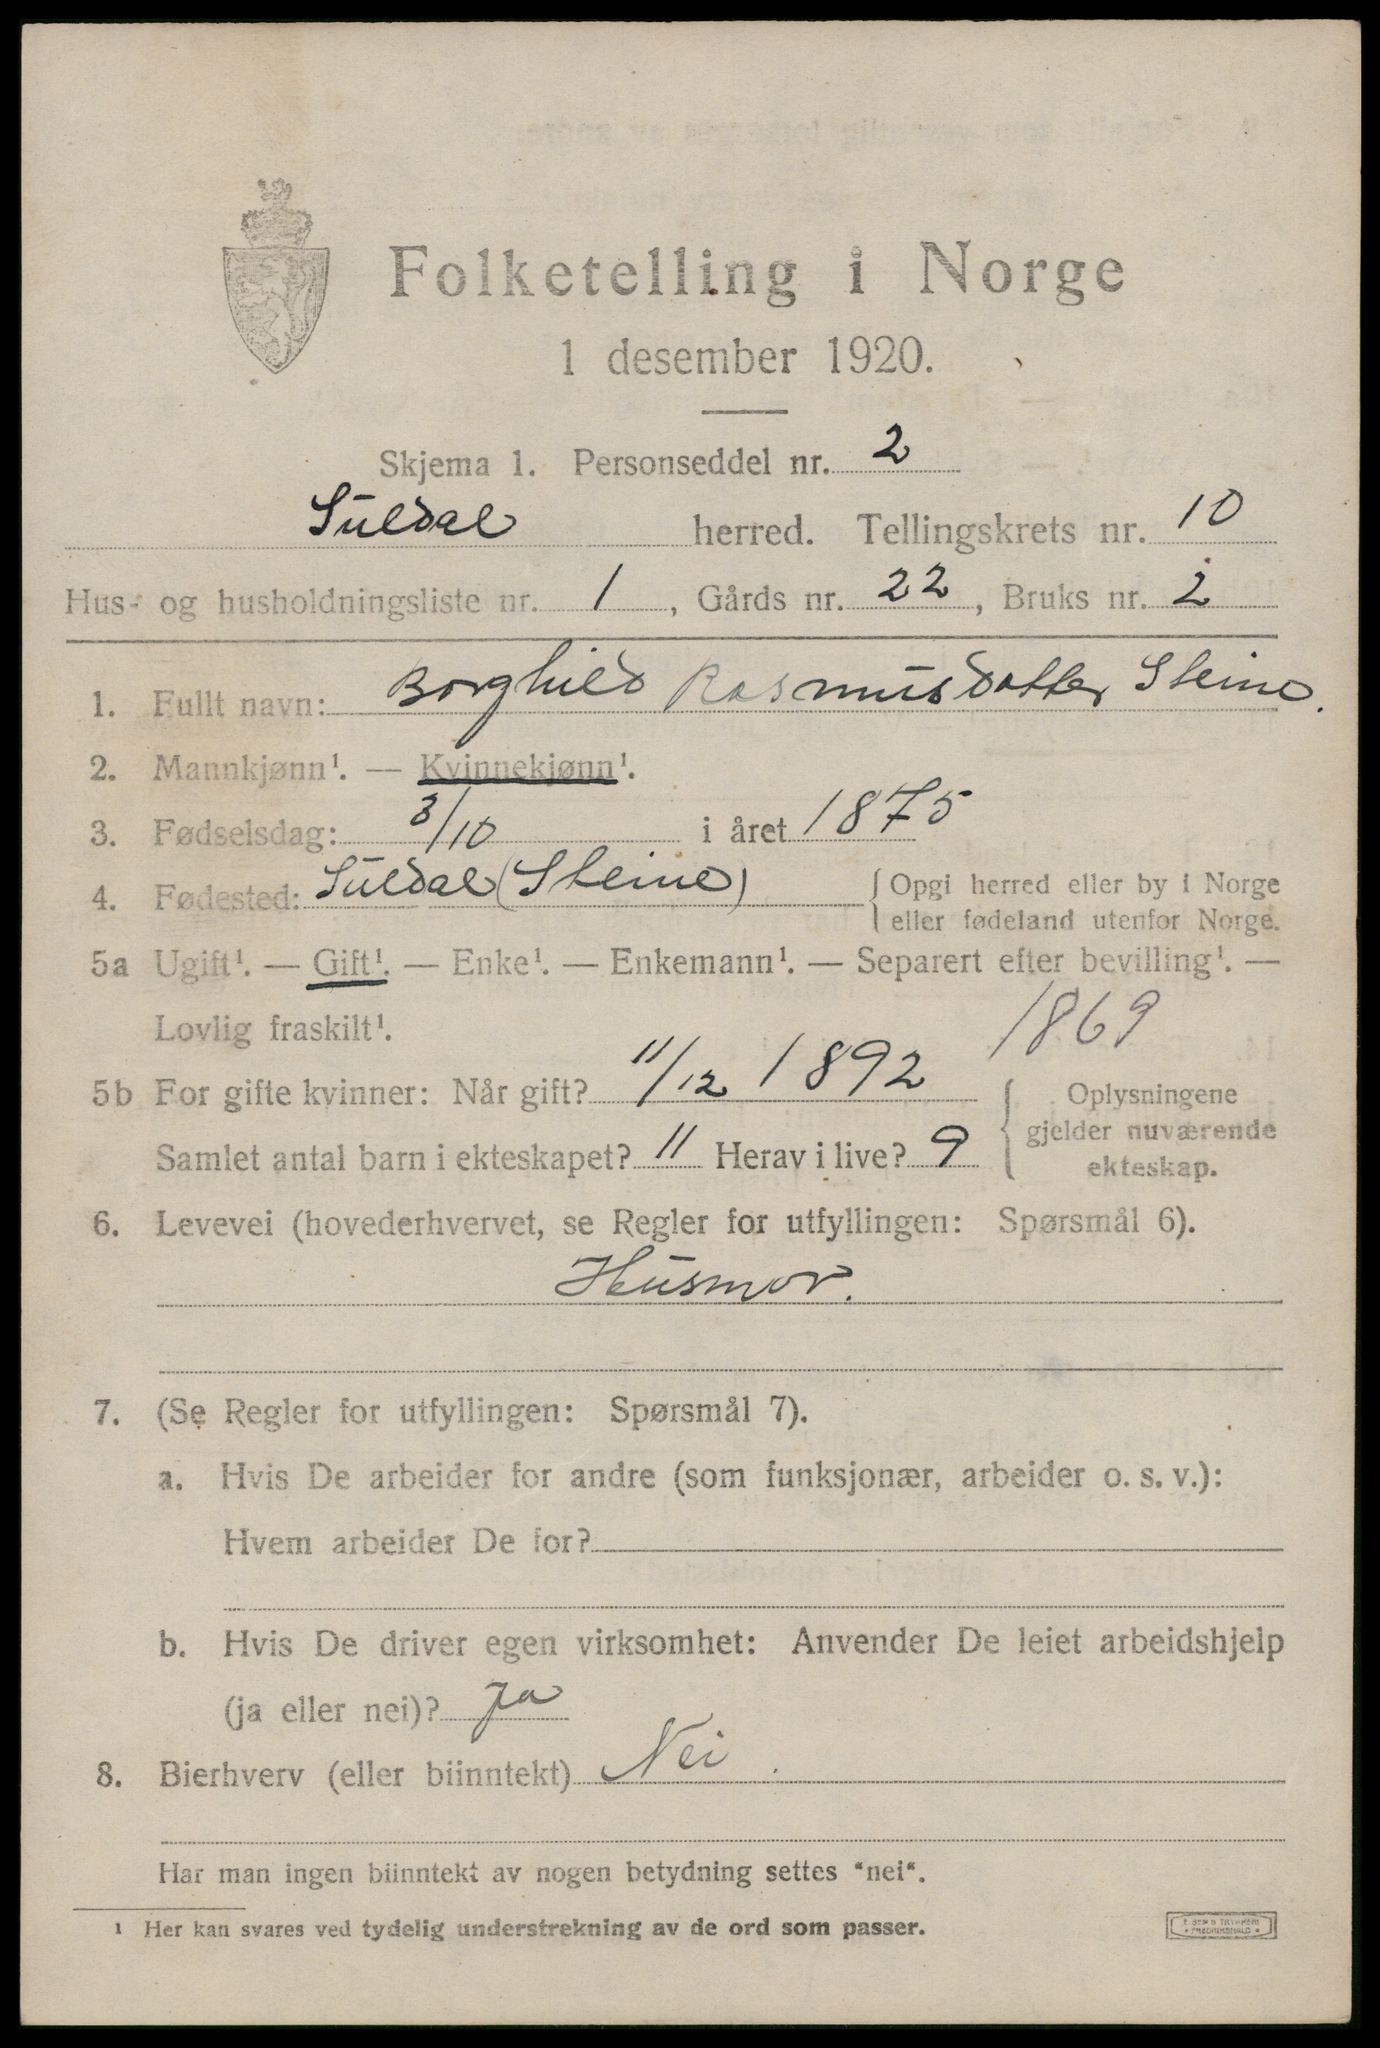 Folketelling i Norge
1 desember 1920.
Skjema 1. Personseddel nr. 2
Suldal herred. Tellingskrets nr. 10
Hus- og husholdningsliste nr. 1, Gårds nr. 22, Bruks nr. 2
1. Fullt navn: Borghild Rasmusdatter Steine.
2. Mannkjønn¹. — Kvinnekjønn¹.
3. Fødselsdag: 3/10 i året 1875
4. Fødested: Suldal (Steine) { Opgi herred eller by i Norge
eller fødeland utenfor Norge.
5a Ugift¹. — Gift¹. — Enke¹. — Enkemann¹. — Separert efter bevilling¹. —
Lovlig fraskilt¹.
1869
5b For gifte kvinner: Når gift? 11/12 1892
Samlet antal barn i ekteskapet? 11 Herav i live? 9
{ Oplysningene
gjelder nuværende
ekteskap.
6. Levevei (hovederhvervet, se Regler for utfyllingen: Spørsmål 6).
Husmor.
7. (Se Regler for utfyllingen: Spørsmål 7).
a. Hvis De arbeider for andre (som funksjonær, arbeider o. s. v.):
Hvem arbeider De for?
b. Hvis De driver egen virksomhet: Anvender De leiet arbeidshjelp
(ja eller nei)? ja
8. Bierhverv (eller biinntekt) Nei.
Har man ingen biinntekt av nogen betydning settes "nei".
¹ Her kan svares ved tydelig understrekning av de ord som passer.